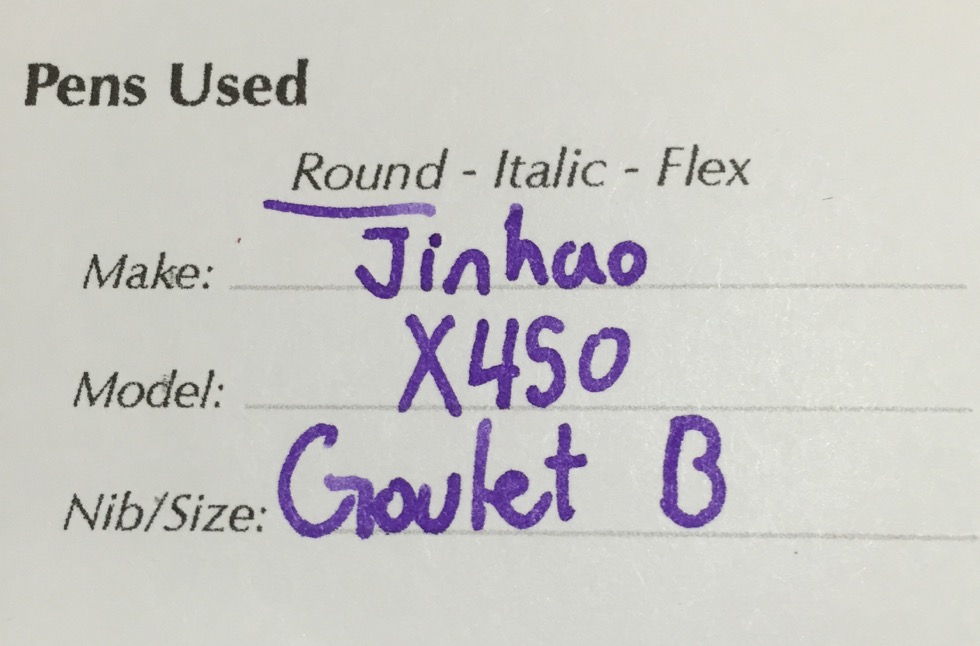 Pens Used
Round - Italic - Flex
Make: Jinhao
Model: X450
Nib/Size: Goulet B